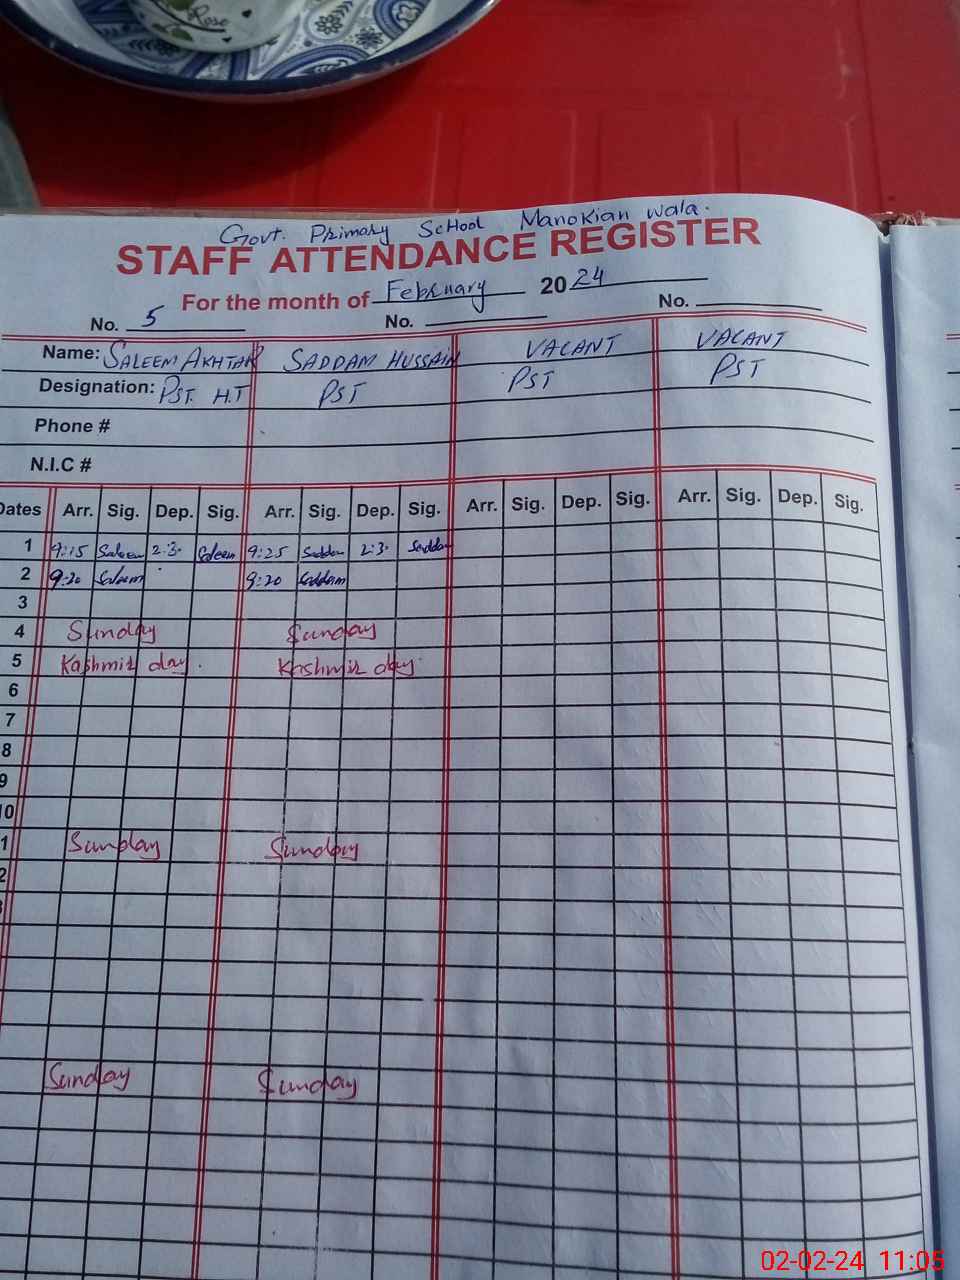 Rose
Govt. Primary School Manokian wala.
STAFF ATTENDANCE REGISTER
For the month of February 2024
No. 5 No. No.
Name: SALEEM AKHTAR SADDAM HUSSAIN VACANT VACANT
Designation: PST. H.T PST PST PST
Phone #
N.I.C #
Dates Arr. Sig. Dep. Sig. Arr. Sig. Dep. Sig. Arr. Sig. Dep. Sig. Arr. Sig. Dep. Sig.
1 9:15 Saleem 2:3. Saleem 9:25 Saddam 2:3. Saddam
2 9:20 Saleem 9:20 Saddam
3
4 Sunday Sunday
5 Kashmir day. Kashmir day.
6
7
8
9
10
1 Sunday Sunday
2
Sunday Sunday
02-02-24 11:05